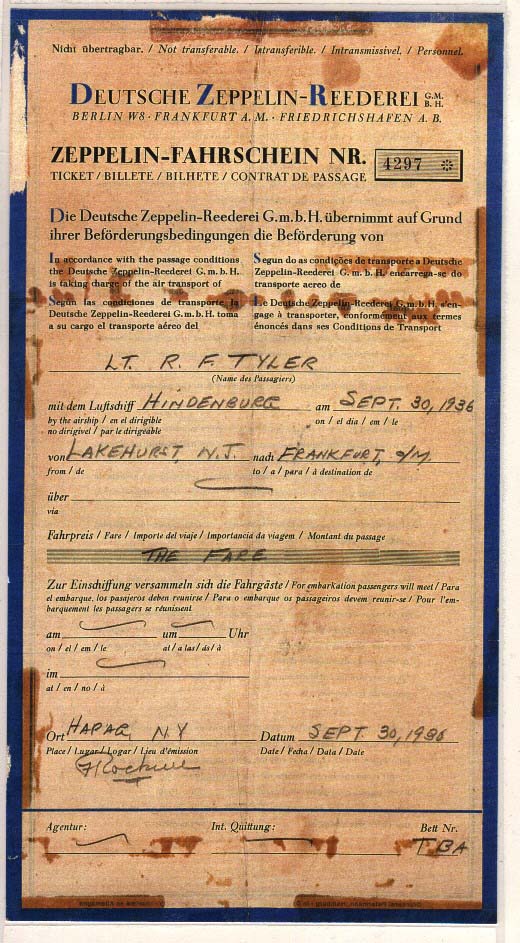 Nicht übertragbar. / Not transferable. / Intransferible. / Intransmissivel. / Personnel.
DEUTSCHE ZEPPELIN-REEDEREI G.M.B.H.
BERLIN W8 · FRANKFURT A.M. · FRIEDRICHSHAFEN A.B.
ZEPPELIN-FAHRSCHEIN NR. 4297 ※
TICKET / BILLETE / BILHETE / CONTRAT DE PASSAGE
Die Deutsche Zeppelin-Reederei G.m.b.H. übernimmt auf Grund
ihrer Beförderungsbedingungen die Beförderung von
In accordance with the passage conditions
the Deutsche Zeppelin-Reederei G. m. b. H.
is taking charge of the air transport of
Según las condiciones de transporte, la
Deutsche Zeppelin-Reederei G. m. b. H. toma
a su cargo el transporte aéreo del
Segun do as condições de transporte a Deutsche
Zeppelin-Reederei G. m. b. H. encarrega-se do
transporte aereo de
Le Deutsche Zeppelin-Reederei G. m. b. H. s'en-
gage à transporter, conformément aux termes
énoncés dans ses Conditions de Transport
LT. R. F. TYLER
(Name des Passagiers)
mit dem Luftschiff HINDENBURG am SEPT. 30, 1936
by the airship / en el dirigible on / el dia / em / le
no dirigivel / par le dirigeable
von LAKEHURST, N.J. nach FRANKFURT, o/M.
from / de to / a / para / à destination de
über
via
Fahrpreis / Fare / Importe del viaje / Importancia da viagem / Montant du passage
THE FARE
Zur Einschiffung versammeln sich die Fahrgäste / For embarkation passengers will meet / Para
el embarque, los pasajeros deben reunirse / Para o embarque os passageiros devem reunir-se / Pour l'em-
barquement les passagers se réunissent
am um Uhr
on / el / em / le at / a las / ás / à
im
at / en / no / à
Ort HAPAG, N.Y Datum SEPT 30, 1936
Place / Lugar / Logar / Lieu d'émission Date / Fecha / Data / Date
Agentur: Int. Quittung: Bett Nr.
TBA